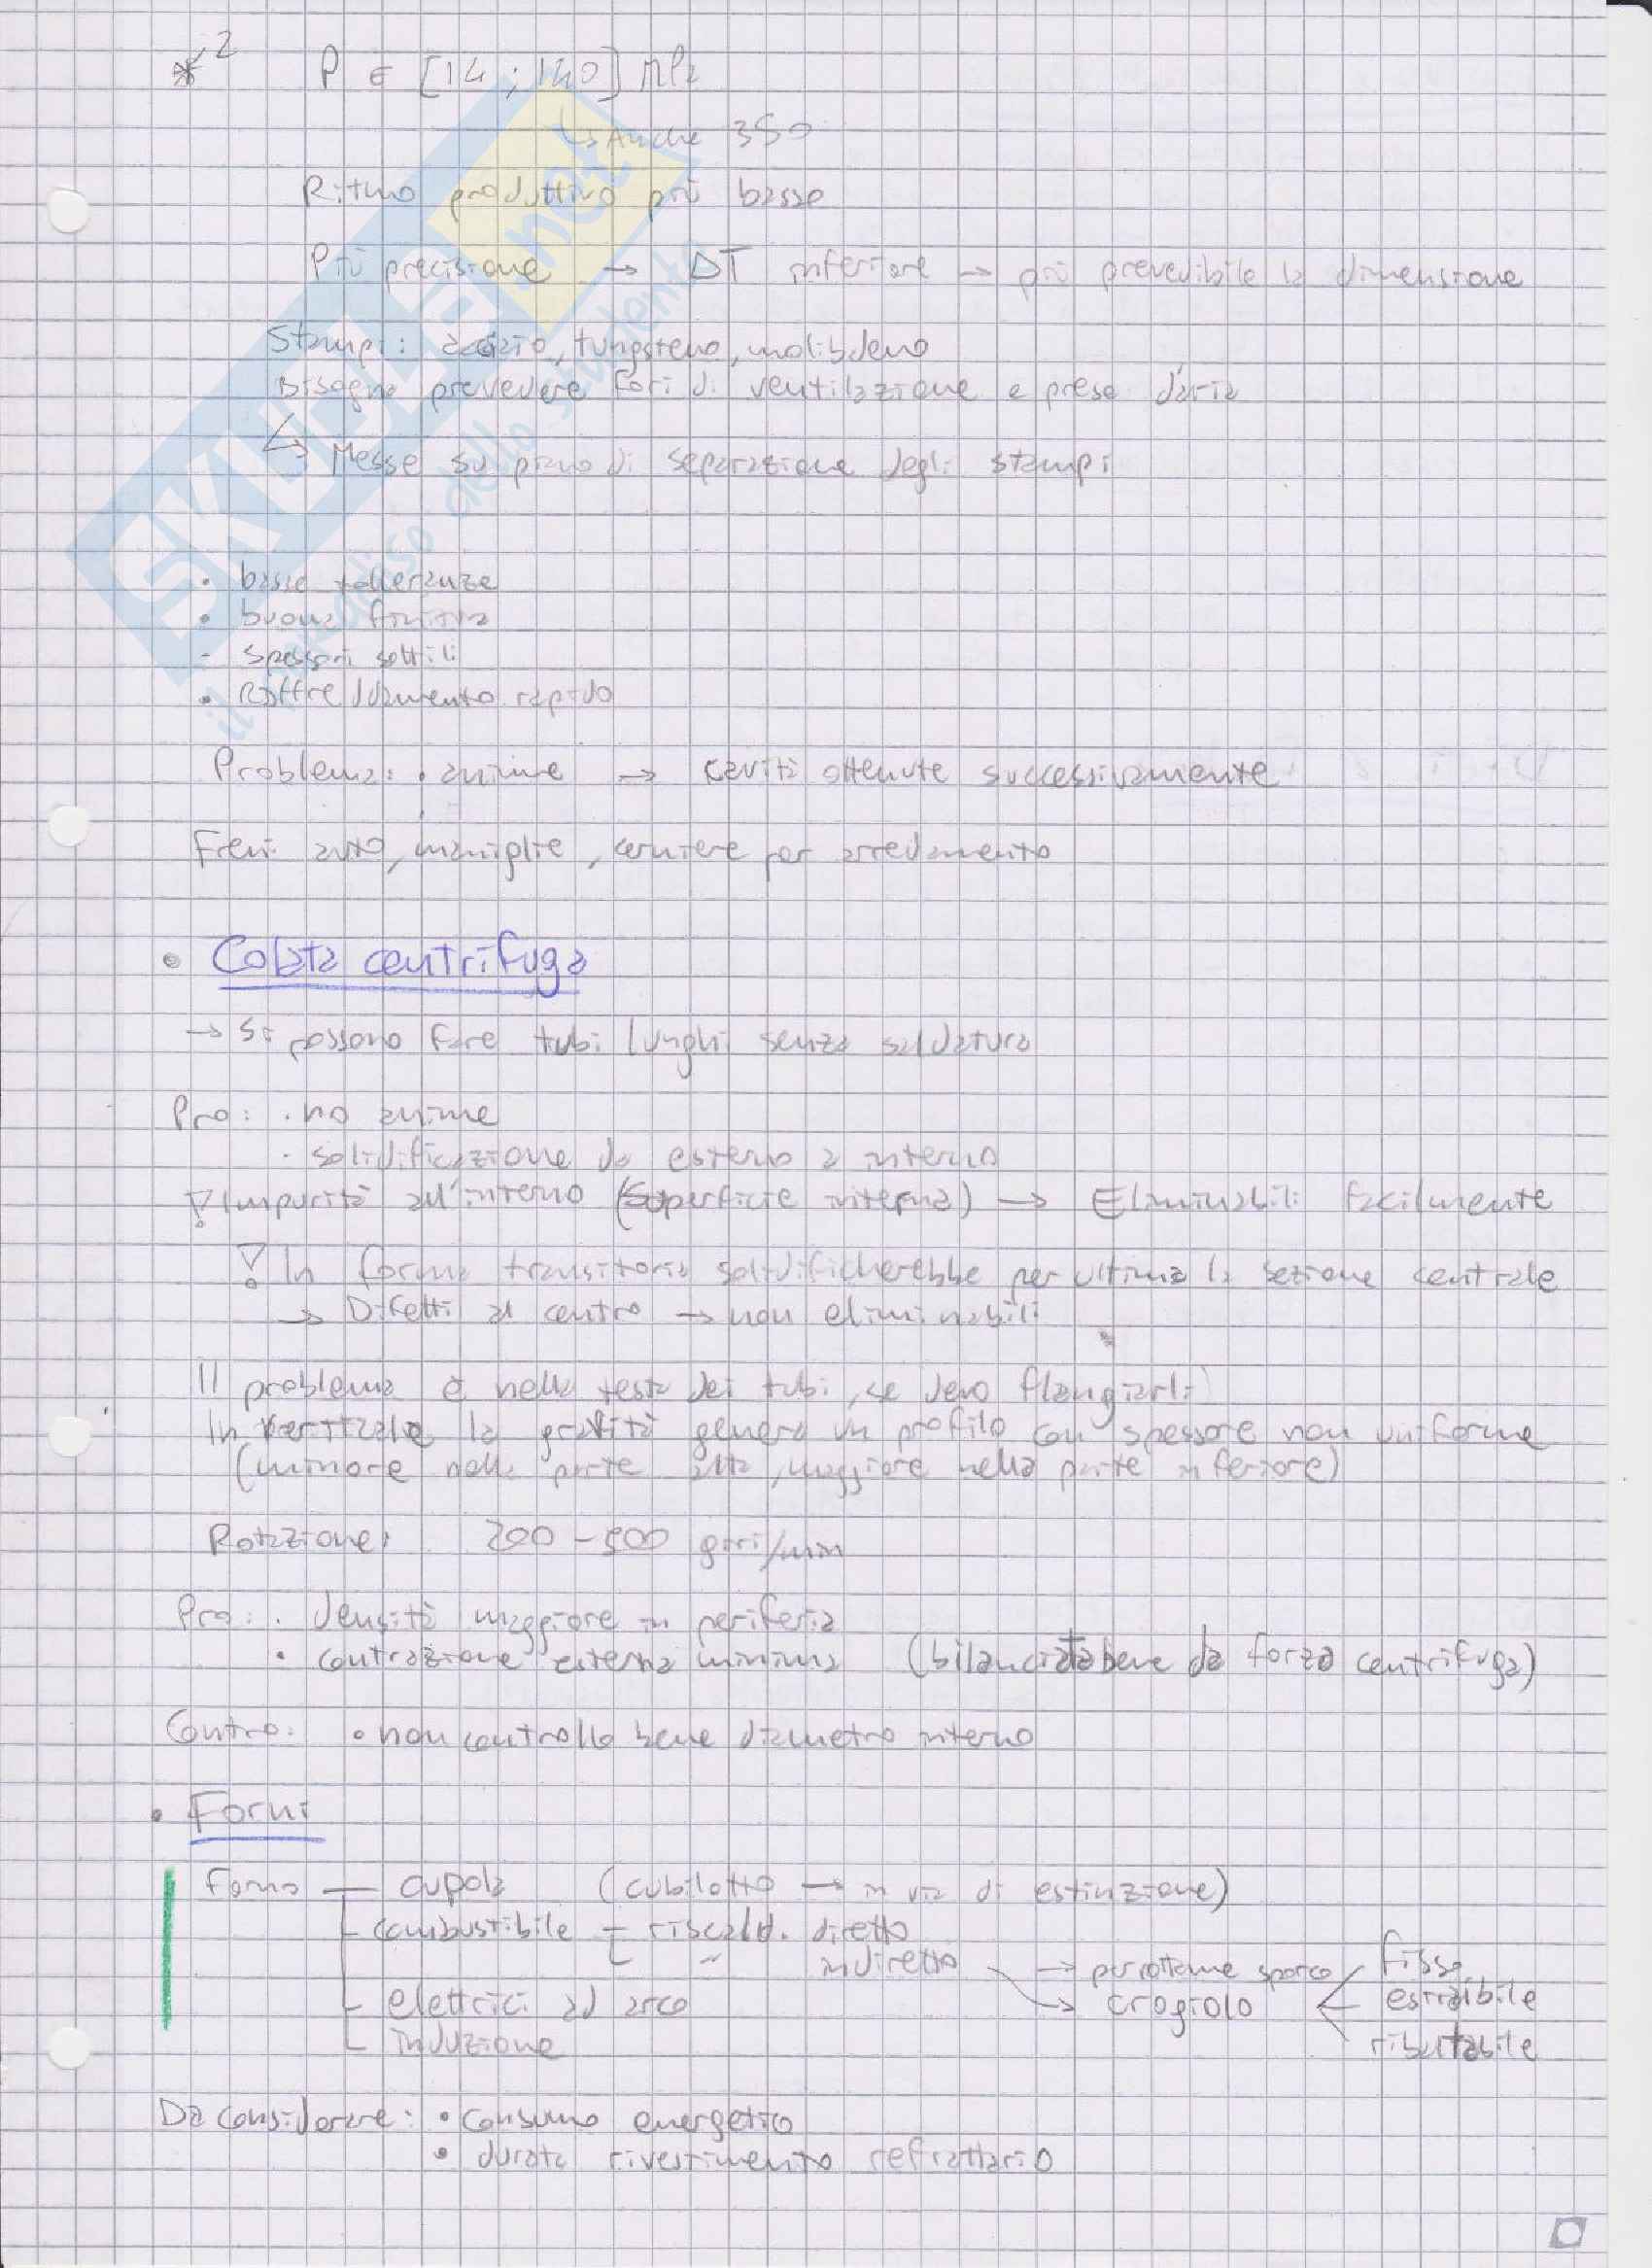 *2 P ∈ [14 ; 140] MPa
↳ Anche 350
Ritmo produttivo più basso
Più precisione → ΔT inferiore → più prevedibile la dimensione
Stampi: acciaio, tungsteno, molibdeno
Bisogna prevedere fori di ventilazione e prese d'aria
↳ Messe su piano di separazione degli stampi
• basse tolleranze
• buona finitura
- spessori sottili
• Raffreddamento rapido
Problema: • anime → cavità ottenute successivamente
Freni auto, maniglie, cerniere per arredamento
• Colata centrifuga
→ Si possono fare tubi lunghi senza saldatura
Pro: • no anime
• solidificazione da esterno a interno
! Impurità all'interno (superficie interna) → Eliminabili facilmente
! In forma transitoria solidificherebbe per ultima la sezione centrale
→ Difetti al centro → non eliminabili
Il problema è nella testa dei tubi, se devo flangiarli
In verticale la gravità genera un profilo con spessore non uniforme
(minore nella parte alta, maggiore nella parte inferiore)
Rotazione: 200 - 500 giri/min
Pro: • densità maggiore in periferia
• contrazione esterna minima (bilanciata bene da forza centrifuga)
Contro: • non controllo bene diametro interno
• Forni
Forno — cupola (cubilotto → in via di estinzione)
combustibile — riscald. diretto
" indiretto → per rottame sporco fisso
elettrici ad arco → crogiolo estraibile
induzione ributtabile
Da considerare: • consumo energetico
• durata rivestimento refrattario
SKUOLA.net
il paradiso dello studente